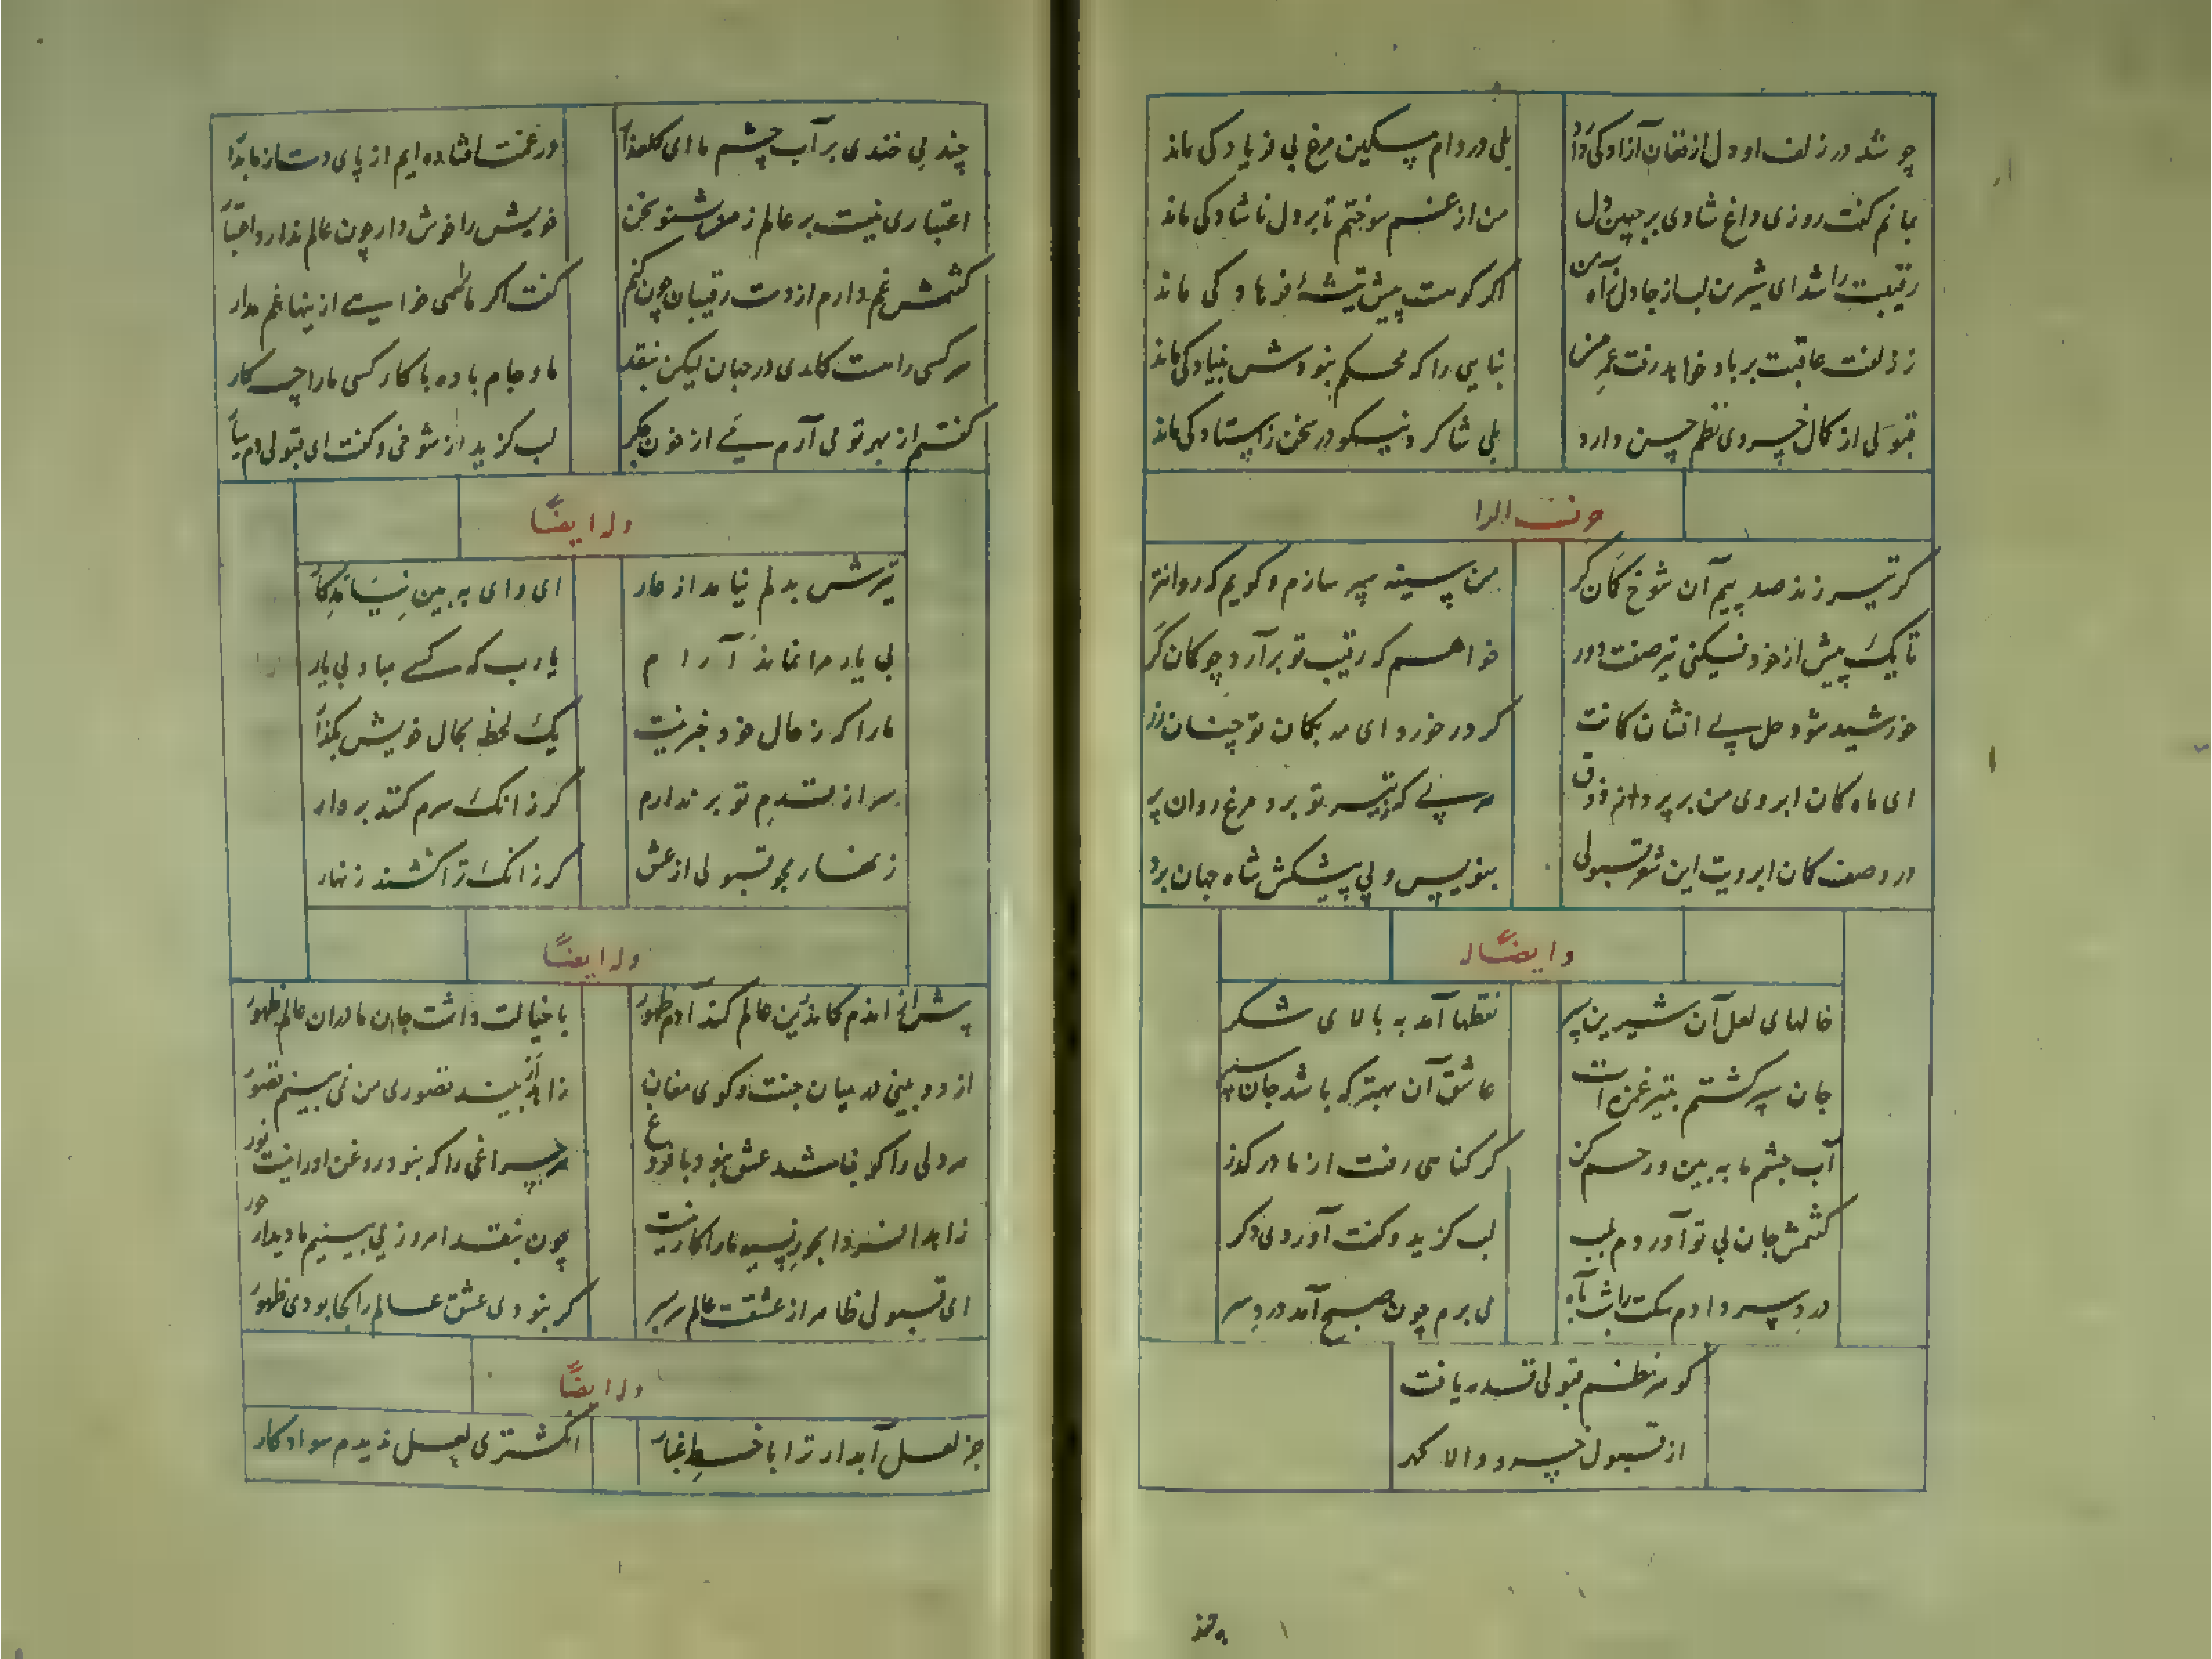 چو شد در زلف او دل از فغان آزاد کی دارد
بلی در دام مسکین مرغ بی فریاد کی ماند
بماتم گفت روزی داغ شادی بر جبین دل
من از غم سوختم تا بر دل ناشاد کی ماند
رقیبت راشد ای شیرین لب از جا دل ز آه من
اگر کوهست پیش تیشهٔ فرهاد کی ماند
ز زلفت عاقبت بر باد خواهد رفت عمر من
بنایی را که محکم نبود بنیاد کی ماند
قبولی از کمال خسروی نظم حسن دارد
بلی شاکرد نیکو در سخن ز استاد کی ماند
کر تیر زند صد پیم آن شوخ کمان کر
من سینه سپر سازم و کویم که روانتر
تا یک پیش از خود فکنی تیر صفت دور
خواهم که رقیب تو برآرد چو کمان کر
خورشید شود حل پی افشان کمانت
کر در خورد ای مه بکمان تو چنان زر
ای ماه کمان ابروی من بر پرد از ذوق
هر پی که بتیر تو برد مرغ روان پر
در وصف کمان ابرویت این شعر قبولی
بنویس و پی پیشکش شاه جهان بر
وایضا له
خالهای لعل آن شیرین پسر
نقطها آمد به بالای شکر
جان سپر کشتم بتیر غمزه ات
عاشق آن بهتر که باشد جان سپر
آب چشم ما به بین و رحم کن
کر کناهی رفت از ما در کذر
کفتمش جان بی تو آوردم بلب
لب کزید و کفت آوردی دکر
درد سر دادم سکت را شب بآه
می برم چون صبح آمد درد سر
کوهر نظم قبولی قدر یافت
از قبول خسرو والا کهر
چند می خندی بر آب چشم ما ای کلعذار
در غمت افتاده ایم از پای دست از ما بدار
اعتباری نیست بر عالم ز من بشنو سخن
خویش را خوش دار چون عالم ندارد اعتبار
کفتمش غم دارم از دست رقیبان چون کنم
کفت اکر ما را می خواهی از اینها غم مدار
هر کسی راهست کاری در جهان لیکن بنقد
ما و جام باده با کار کسی ما را چه کار
کفتم از بهر تو می آرم می از خون جکر
لب کزید از شوخی و کفت ای قبولی دم بیار
وله ایضاً
تیرش بدلم نیامد از عار
ای وای به بین
بی یار مرا نماند آرام
یارب که کسی مباد بی یار
ما را که ز حال خود خبر نیست
یک لحظه بحال خویش بکذار
سر از قدم تو بر ندارم
کر زانک سرم کنند بر دار
زنهار مجو قبولی از عشق
کر زانک ترا کشند زنهار
وله ایضاً
پیش از اندم کاندرین عالم کند آدم ظهور
با خیالت داشت جان ما در آن عالم ظهور
از دو بینی در میان جنت و کوی مغان
زاهد ار بیند قصوری من نمی بینم قصور
هر دلی را کو نباشد عشق نبود با فروغ
هر چراغی را که نبود روغن او را نیست نور
زاهدا فردا بحور نسیه ما را کار نیست
چون بنقد امروز می بینیم ما دیدار حور
ای قبولی ظاهر از عشقست عالم سر بسر
کر نبودی عشق عالم را کجا بودی ظهور
وله ایضاً
جز لعل آبدار ترا با خط غبار
انکشتری لعل ندیدم سواد کار